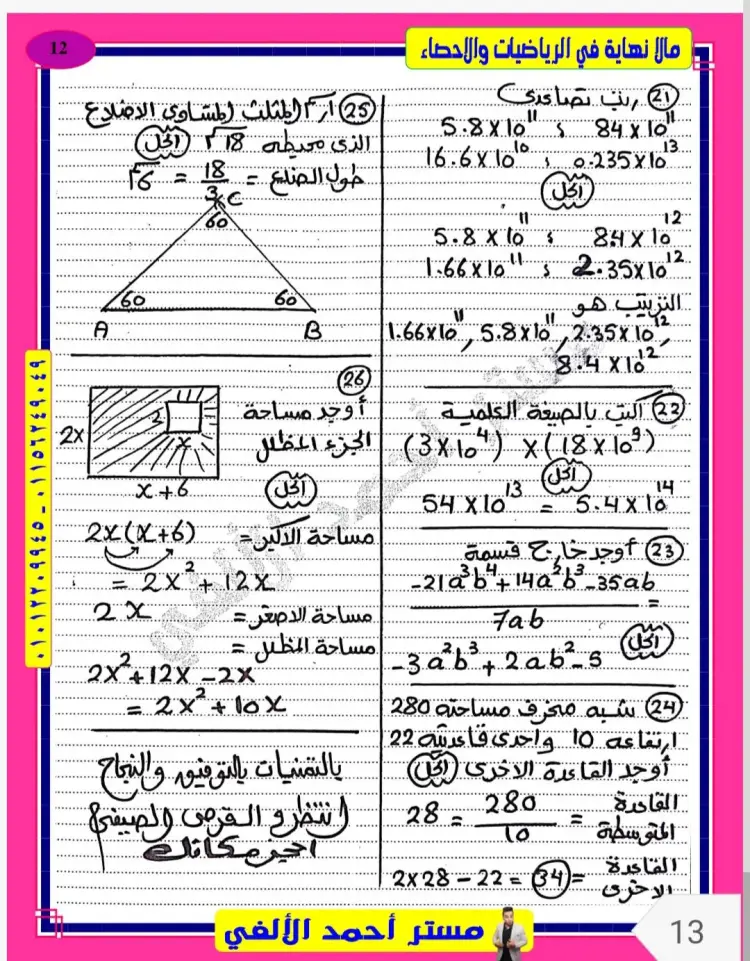 12
مالا نهاية في الرياضيات والاحصاء
21 رتب تصاعدي
5.8 x 10^11 ، 84 x 10^11
16.6 x 10^10 ، 0.235 x 10^13
الحل
5.8 x 10^11 ، 8.4 x 10^12
1.66 x 10^11 ، 2.35 x 10^12
الترتيب هو
1.66 x 10^11 , 5.8 x 10^11 , 2.35 x 10^12 ,
8.4 x 10^12
23 اكتب بالصيغة العلمية
(3 x 10^4) x (18 x 10^9)
الحل
54 x 10^13 = 5.4 x 10^14
23 أوجد خارج قسمة
-21a^3b^4 + 14a^2b^3 - 35ab
=
7ab
الحل
-3a^2b^3 + 2ab^2 - 5
24 شبه منحرف مساحته 280
ارتفاعه 10 واحدى قاعدتيه 22
أوجد القاعدة الاخرى الحل
القاعدة المتوسطة = 280/10 = 28
القاعدة الاخرى = 2x28 - 22 = 34
25 ارسم المثلث المتساوى الاضلاع
الذى محيطه 18 الحل
طول الضلع = 18/3 = 6
C
60
60 60
A B
26
أوجد مساحة
الجزء المظلل
2x
2
x
x + 6
الحل
مساحة الاكبر = 2x(x+6)
= 2x^2 + 12x
مساحة الاصغر = 2x
مساحة المظلل =
2x^2 + 12x - 2x
= 2x^2 + 10x
بالتمنيات بالتوفيق والنجاح
انتظرو العرض الصيفي
احجز مكانك
٠١٠١٢٢٠٩٩٤٥ - ٠١١٥٦٢٤٩٠٤٩
مستر أحمد الألفي
13